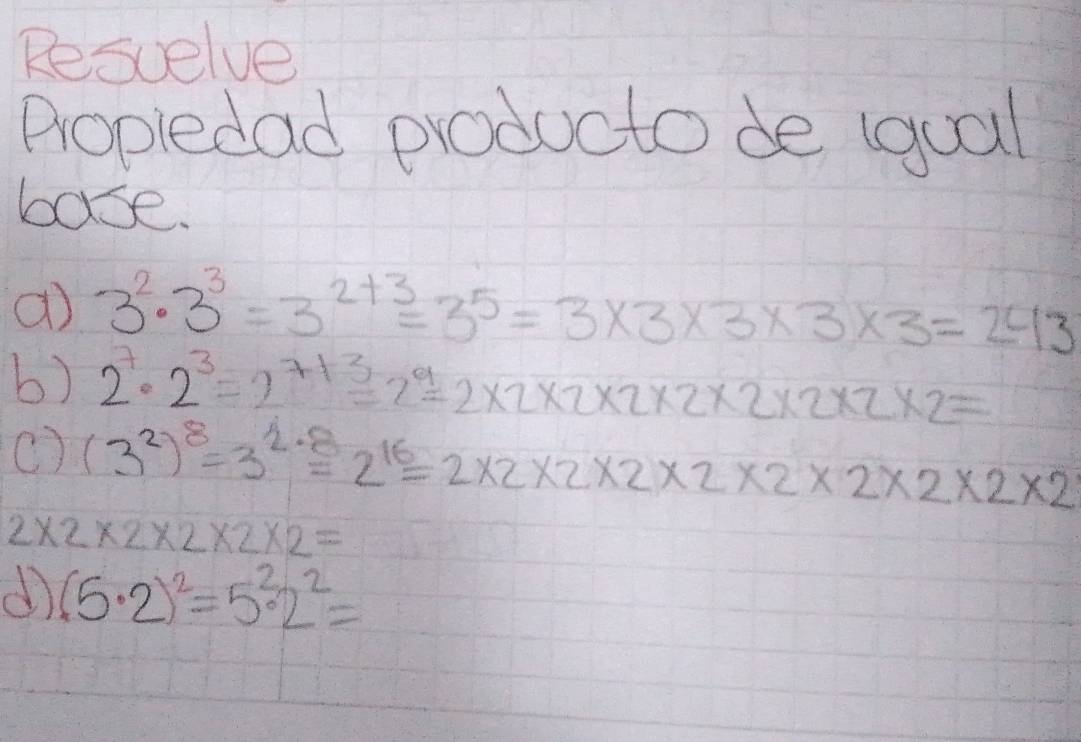 Resuelve
Propiedad producto de igual
base.
a) 3²·3³ = 3²⁺³ = 3⁵ = 3×3×3×3×3 = 243
b) 2⁷·2³ = 2⁷⁺³ = 2⁹ = 2×2×2×2×2×2×2×2×2 =
c) (3²)⁸ = 3²·⁸ = 2¹⁶ = 2×2×2×2×2×2×2×2×2×2
2×2×2×2×2×2 =
d) (5·2)² = 5²·2² =